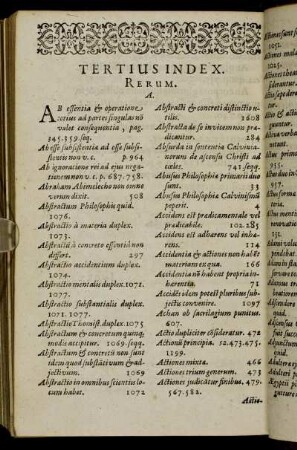 TERTIUS INDEX.
RERUM.
A.
AB essentia & operatione
actiones ad partes singulas nō
valet consequentia, pag.
345.359.seq.
Ab esse subsistentia ad esse subsi-
stentis non v. c. p.964
Ab ignoratione rei ad ejus nega-
tionem non v. c. p. 687.758.
Abraham Abimelecho non omne
verum dixit. 508
Abstractum Philosophis quid.
1076.
Abstractio à materia duplex.
1073.
Abstracti à concreto essentiâ non
differt. 297
Abstractio accidentium duplex.
1074.
Abstractio mentalis duplex. 1071.
1077.
Abstractio substantialis duplex.
1071. 1077.
Abstractio Thomist. duplex. 1075
Abstractum & concretum quomo-
do accipitur. 1069.seqq.
Abstractum & concretū non sunt
idem quod substantivum & ad-
jectivum. 1069
Abstractio in omnibus scientiis lo-
cum habet. 1072
Abstracti & concreti distinctio u-
tilis. 1608
Abstracta de se invicem non præ-
dicantur. 284
Absurda in sententia Calviniano-
rum de ascensu Christi ad
cælos. 747
Abusus Philosophiæ primarii duo
sunt. 33
Abusus Philosophiæ Calvinismū
peperit.
Accidens est prædicamentale vel
prædicabile. 102.285
Accidens est adhærens vel inhæ-
rens. 114
Accidentia & actiones non habēt
materiam ex qua. 166
Accidentia nō habent propriā in-
hærentiā. 71
Accidēs idem potest pluribus sub-
jectis convenire. 1097
Achan ob sacrilegium punitus.
607.
Actio dupliciter consideratur. 472
Actionū principia. 12.473.475.
1199.
Actiones mixta. 466
Actiones trium generum. 473
Actiones judicātur finibus. 479.
567.582.
Actio-